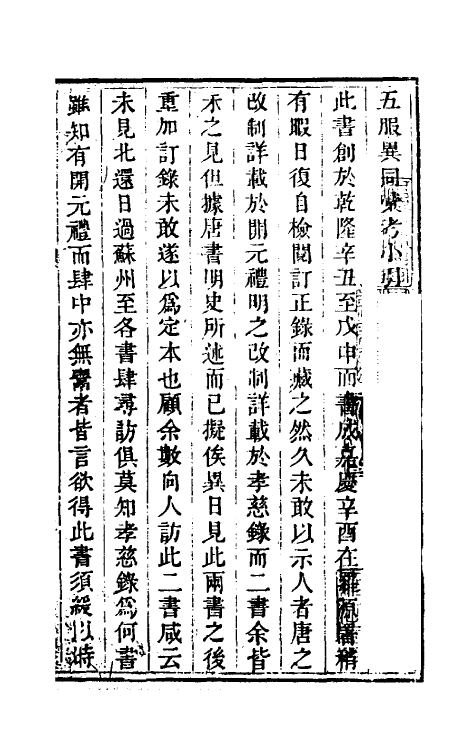 五服異同彙考小引
此書創於乾隆辛丑至戊申而書成嘉慶辛酉在羅源署稍
有暇日復自檢閱訂正錄而藏之然久未敢以示人者唐之
改制詳載於開元禮明之改制詳載於孝慈錄而二書余皆
未之見但據唐書明史所述而已擬俟異日見此兩書之後
重加訂錄未敢遂以爲定本也顧余數向人訪此二書咸云
未見北還日過蘇州至各書肆尋訪俱莫知孝慈錄爲何書
雖知有開元禮而肆中亦無鬻者皆言欲得此書須緩以時